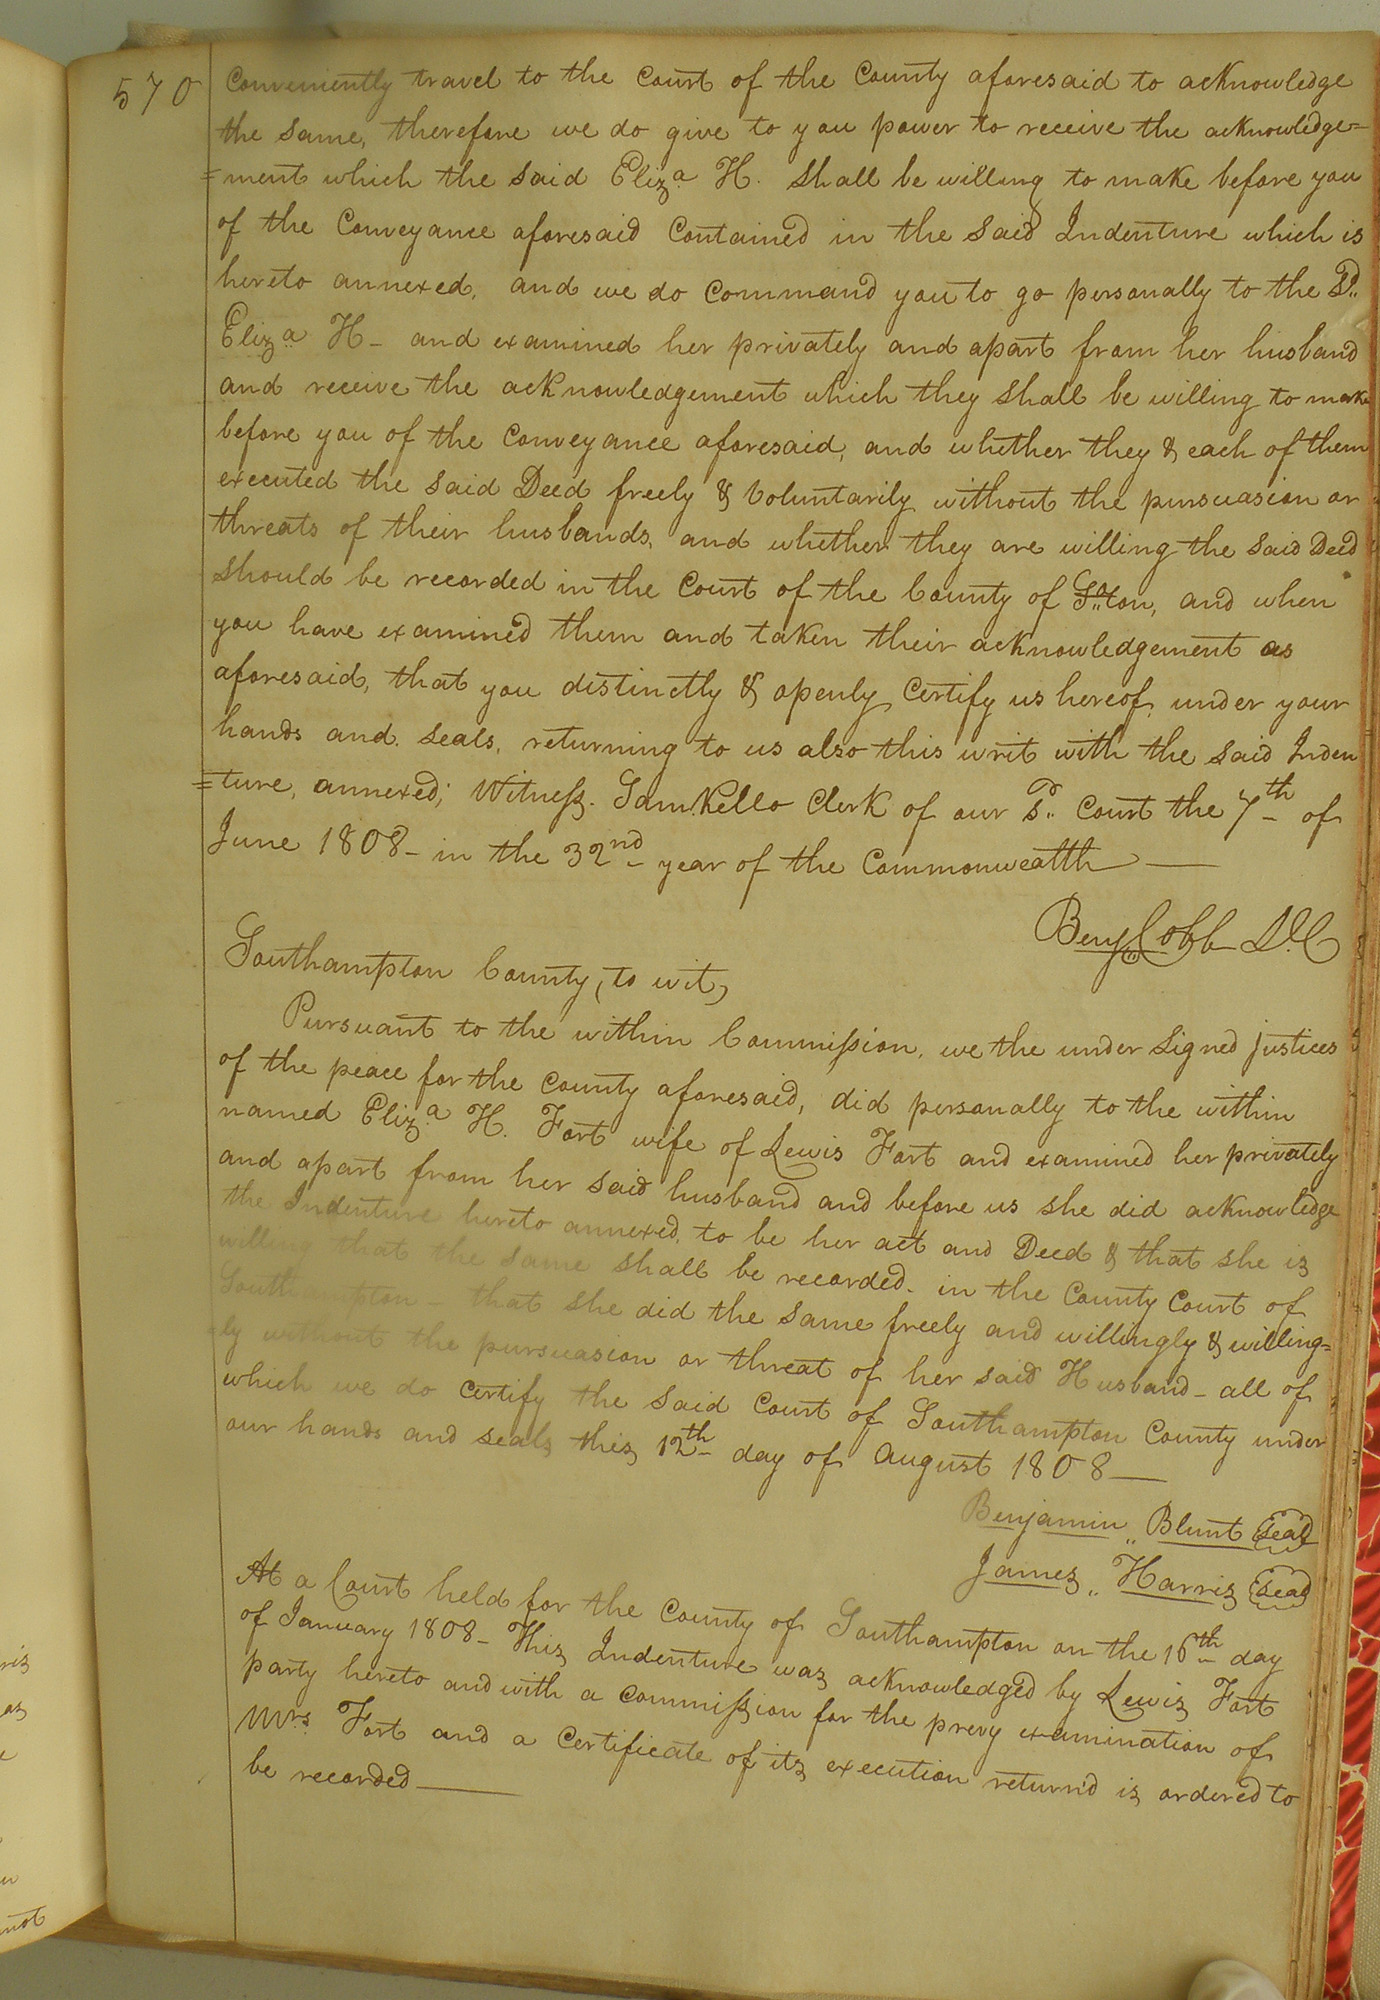 570
Conveniently travel to the Court of the County aforesaid to acknowledge
the same, therefore we do give to you power to receive the acknowledge=
=ment which the said Eliza H. shall be willing to make before you
of the Conveyance aforesaid Contained in the said Indenture which is
hereto annexed, and we do Command you to go personally to the Sd.
Eliza H- and examined her privately and apart from her husband
and receive the acknowledgement which they shall be willing to make
before you of the Conveyance aforesaid, and whether they & each of them
executed the said Deed freely & Voluntarily without the pursuasion or
threats of their husbands, and whether they are willing the said Deed
should be recorded in the Court of the County of S.ton, and when
you have examined them and taken their acknowledgement as
aforesaid, that you distinctly & openly Certify us hereof, under your
hands and. seals, returning to us also this writ with the said Inden
=ture, annexed; Witness. Saml. Kello Clerk of our Sd. Court the 7th of
June 1808- in the 32nd year of the Commonwealth —
Benj Cobb D.C
Southampton County, to wit,
Pursuant to the within Commission, we the under signed justices
of the peace for the County aforesaid, did personally to the within
named Eliza H. Fort wife of Lewis Fort and examined her privately
and apart from her said husband and before us she did acknowledge
the Indenture hereto annexed, to be her act and Deed & that she is
willing that the same shall be recorded. in the County Court of
Southampton that she did the same freely and willingly & willing=
=ly without the pursuasion or threat of her said Husband- all of
which we do Certify the said Court of Southampton County under
our hands and seals this 12th day of August 1808 —
Benjamin Blunt Seal
James Harris Seal
At a Court held for the County of Southampton on the 16th day
of January 1808- This Indenture was acknowledged by Lewis Fort
party hereto and with a Commission for the prevy examination of
Mrs Fort and a Certificate of its execution return'd is ordered to
be recorded —